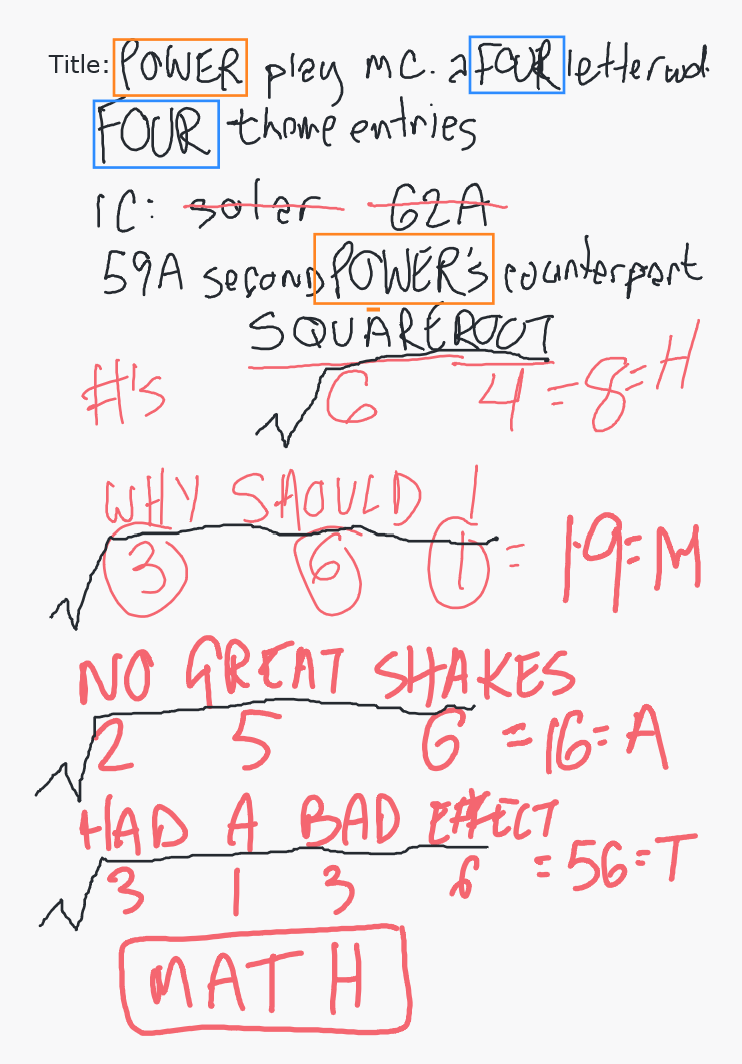 Title: POWER play mc. a FOUR letter wd.
FOUR thome entries
IC: solar 62A
59A second POWER's counterpart
SQUAREROOT
#'s √6 4 = 8 = H
WHY SHOULD I
√3 6 1 = 19 = M
NO GREAT SHAKES
√2 5 6 = 16 = A
HAD A BAD EFFECT
√3 1 3 6 = 56 = T
MATH